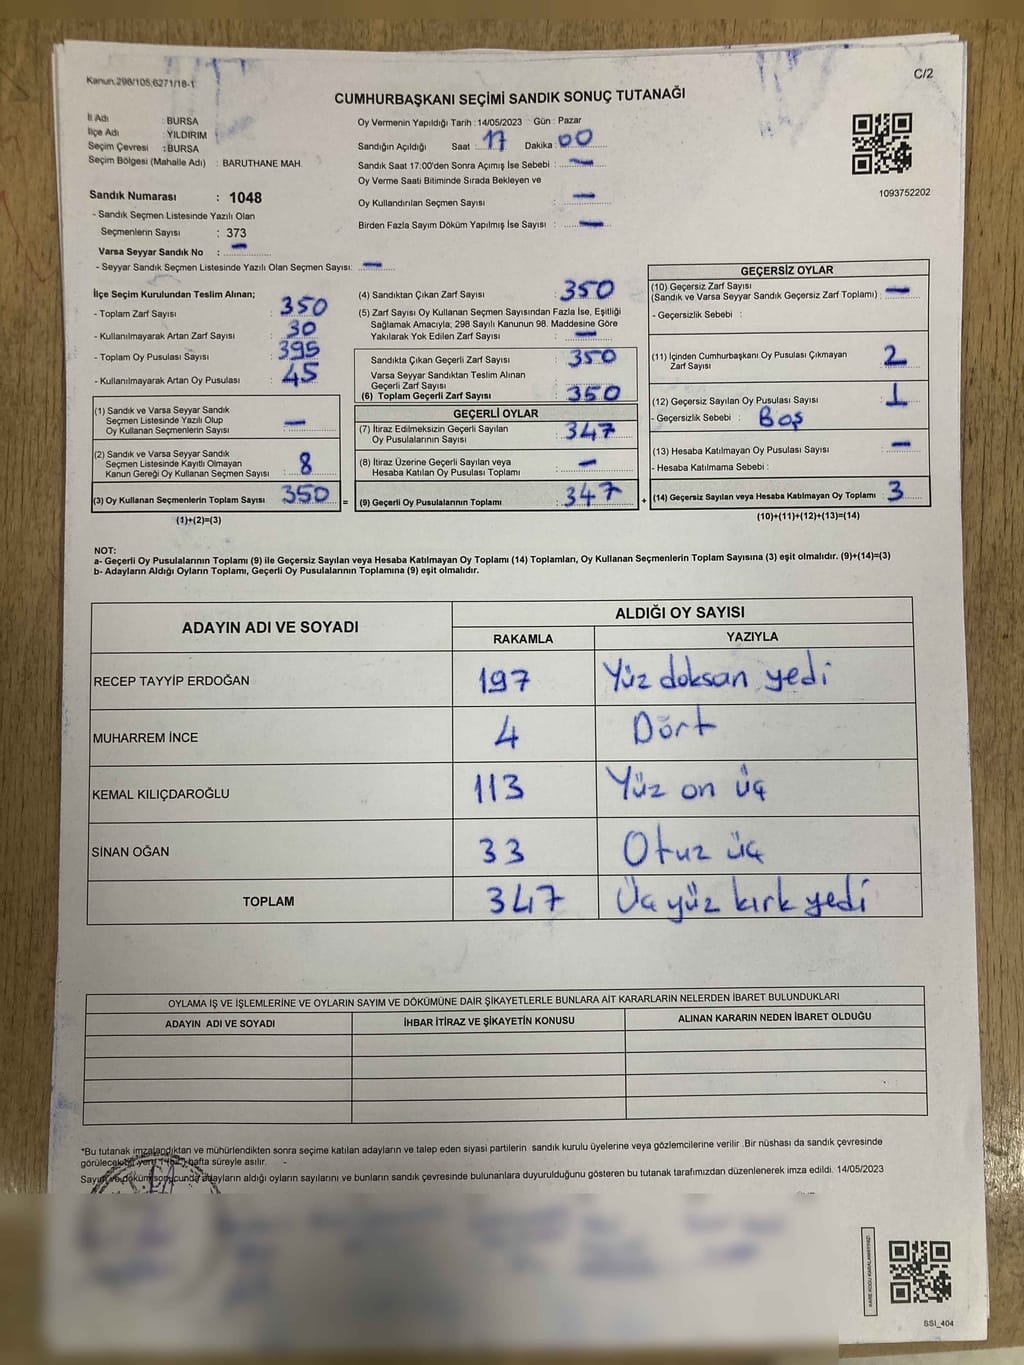 Kanun:298/105;6271/18-1
C/2
CUMHURBAŞKANI SEÇİMİ SANDIK SONUÇ TUTANAĞI
İl Adı : BURSA
İlçe Adı : YILDIRIM
Seçim Çevresi : BURSA
Seçim Bölgesi (Mahalle Adı) : BARUTHANE MAH.
Sandık Numarası : 1048
- Sandık Seçmen Listesinde Yazılı Olan
Seçmenlerin Sayısı : 373
Varsa Seyyar Sandık No : -
- Seyyar Sandık Seçmen Listesinde Yazılı Olan Seçmen Sayısı: -
Oy Vermenin Yapıldığı Tarih : 14/05/2023 Gün : Pazar
Sandığın Açıldığı Saat : 17 Dakika : 00
Sandık Saat 17:00'den Sonra Açımış İse Sebebi : -
Oy Verme Saati Bitiminde Sırada Bekleyen ve
Oy Kullandırılan Seçmen Sayısı : -
Birden Fazla Sayım Döküm Yapılmış İse Sayısı : -
1093752202
İlçe Seçim Kurulundan Teslim Alınan;
- Toplam Zarf Sayısı : 350
- Kullanılmayarak Artan Zarf Sayısı : 30
- Toplam Oy Pusulası Sayısı : 395
- Kullanılmayarak Artan Oy Pusulası : 45
(1) Sandık ve Varsa Seyyar Sandık
Seçmen Listesinde Yazılı Olup
Oy Kullanan Seçmenlerin Sayısı : -
(2) Sandık ve Varsa Seyyar Sandık
Seçmen Listesinde Kayıtlı Olmayan
Kanun Gereği Oy Kullanan Seçmen Sayısı : 8
(3) Oy Kullanan Seçmenlerin Toplam Sayısı : 350 =
(1)+(2)=(3)
(4) Sandıktan Çıkan Zarf Sayısı : 350
(5) Zarf Sayısı Oy Kullanan Seçmen Sayısından Fazla İse, Eşitliği
Sağlamak Amacıyla, 298 Sayılı Kanunun 98. Maddesine Göre
Yakılarak Yok Edilen Zarf Sayısı : -
Sandıkta Çıkan Geçerli Zarf Sayısı : 350
Varsa Seyyar Sandıktan Teslim Alınan
Geçerli Zarf Sayısı :
(6) Toplam Geçerli Zarf Sayısı : 350
GEÇERLİ OYLAR
(7) İtiraz Edilmeksizin Geçerli Sayılan
Oy Pusulalarının Sayısı : 347
(8) İtiraz Üzerine Geçerli Sayılan veya
Hesaba Katılan Oy Pusulası Toplamı : -
(9) Geçerli Oy Pusulalarının Toplamı : 347 +
GEÇERSİZ OYLAR
(10) Geçersiz Zarf Sayısı
(Sandık ve Varsa Seyyar Sandık Geçersiz Zarf Toplamı) : -
- Geçersizlik Sebebi :
(11) İçinden Cumhurbaşkanı Oy Pusulası Çıkmayan
Zarf Sayısı : 2
(12) Geçersiz Sayılan Oy Pusulası Sayısı : 1
- Geçersizlik Sebebi : Boş
(13) Hesaba Katılmayan Oy Pusulası Sayısı : -
- Hesaba Katılmama Sebebi :
(14) Geçersiz Sayılan veya Hesaba Katılmayan Oy Toplamı : 3
(10)+(11)+(12)+(13)=(14)
NOT:
a- Geçerli Oy Pusulalarının Toplamı (9) ile Geçersiz Sayılan veya Hesaba Katılmayan Oy Toplamı (14) Toplamları, Oy Kullanan Seçmenlerin Toplam Sayısına (3) eşit olmalıdır. (9)+(14)=(3)
b- Adayların Aldığı Oyların Toplamı, Geçerli Oy Pusulalarının Toplamına (9) eşit olmalıdır.
ADAYIN ADI VE SOYADI
ALDIĞI OY SAYISI
RAKAMLA YAZIYLA
RECEP TAYYİP ERDOĞAN 197 Yüz doksan yedi
MUHARREM İNCE 4 Dört
KEMAL KILIÇDAROĞLU 113 Yüz on üç
SİNAN OĞAN 33 Otuz üç
TOPLAM 347 Üç yüz kırk yedi
OYLAMA İŞ VE İŞLEMLERİNE VE OYLARIN SAYIM VE DÖKÜMÜNE DAİR ŞİKAYETLERLE BUNLARA AİT KARARLARIN NELERDEN İBARET BULUNDUKLARI
ADAYIN ADI VE SOYADI İHBAR İTİRAZ VE ŞİKAYETİN KONUSU ALINAN KARARIN NEDEN İBARET OLDUĞU
*Bu tutanak imzalandıktan ve mühürlendikten sonra seçime katılan adayların ve talep eden siyasi partilerin sandık kurulu üyelerine veya gözlemcilerine verilir .Bir nüshası da sandık çevresinde
görülecek bir yere 1 hafta süreyle asılır.
Sayım ve döküm sonucunda adayların aldığı oyların sayılarını ve bunların sandık çevresinde bulunanlara duyurulduğunu gösteren bu tutanak tarafımızdan düzenlenerek imza edildi. 14/05/2023
SSI_404